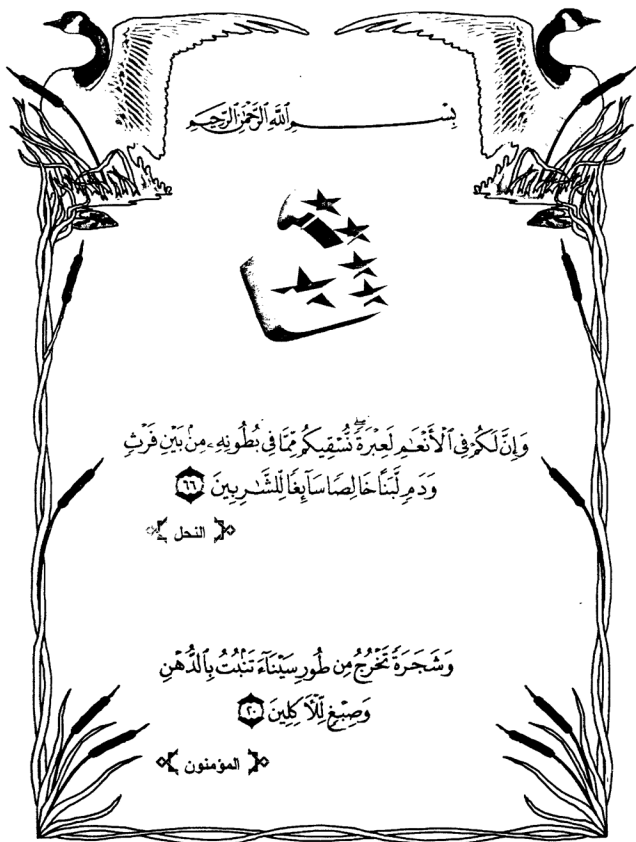 بِسْمِ اللَّهِ الرَّحْمَٰنِ الرَّحِيمِ
وَإِنَّ لَكُمْ فِي الْأَنْعَٰمِ لَعِبْرَةً ۖ نُّسْقِيكُم مِّمَّا فِي بُطُونِهِۦ مِنۢ بَيْنِ فَرْثٍ
وَدَمٍ لَّبَنًا خَالِصًا سَآئِغًا لِّلشَّٰرِبِينَ ٦٦
النحل
وَشَجَرَةً تَخْرُجُ مِن طُورِ سَيْنَآءَ تَنۢبُتُ بِالدُّهْنِ
وَصِبْغٍ لِّلْآكِلِينَ ٢٠
المؤمنون